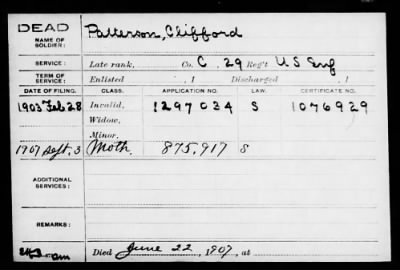 DEAD
NAME OF SOLDIER: Patterson, Clifford
SERVICE: Late rank, Co. C. 29 Reg't U S Inf
TERM OF SERVICE: Enlisted , 1 Discharged , 1
DATE OF FILING. CLASS. APPLICATION NO. LAW. CERTIFICATE NO.
1903 Feb 28 Invalid, 1297034 S 1076929
Widow,
Minor,
1907 Sept. 3 Moth. 875,917 S
ADDITIONAL SERVICES:
REMARKS:
Died June 22, 1907, at